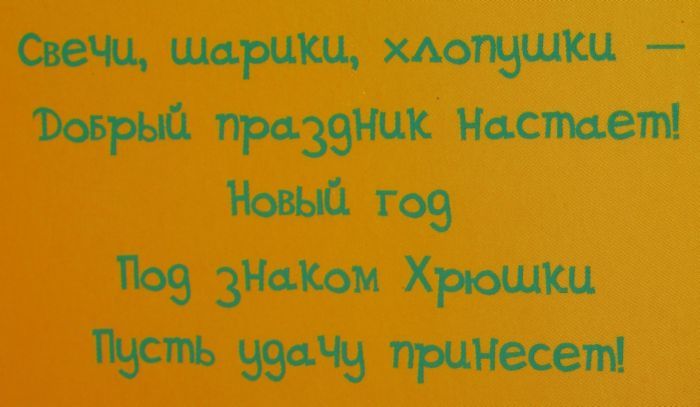 Свечи, шарики, хлопушки —
Добрый праздник настает!
Новый год
Под знаком Хрюшки
Пусть удачу принесет!